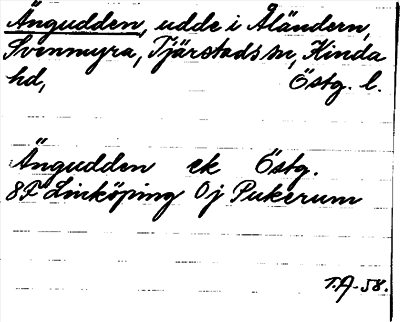 Ängudden, udde i Åländern,
Svenmyra, Tjärstads sn, Kinda
hd, Östg. l.
Ängudden ek Östg.
8F Linköping 0j Pukerum
T.A-58.